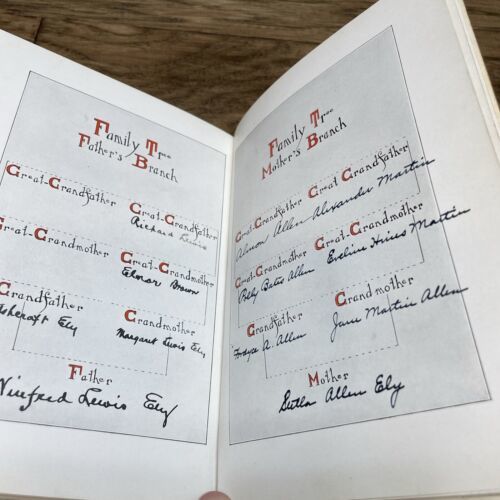 Family Tree
Father's Branch
Great-Grandfather
Great-Grandfather
Richard Lewis
Great-Grandmother
Great-Grandmother
Elenor Brown
Grandfather
Ashcraft Ely
Grandmother
Margaret Lewis Ely
Father
Winfred Lewis Ely
Family Tree
Mother's Branch
Great-Grandfather
Almon Allen
Great Grandfather
Alexander Martin
Great-Grandmother
Polly Bates Allen
Great-Grandmother
Eveline Hines Martin
Grandfather
Fordyce A. Allen
Grandmother
Jane Martin Allen
Mother
Allen Ely